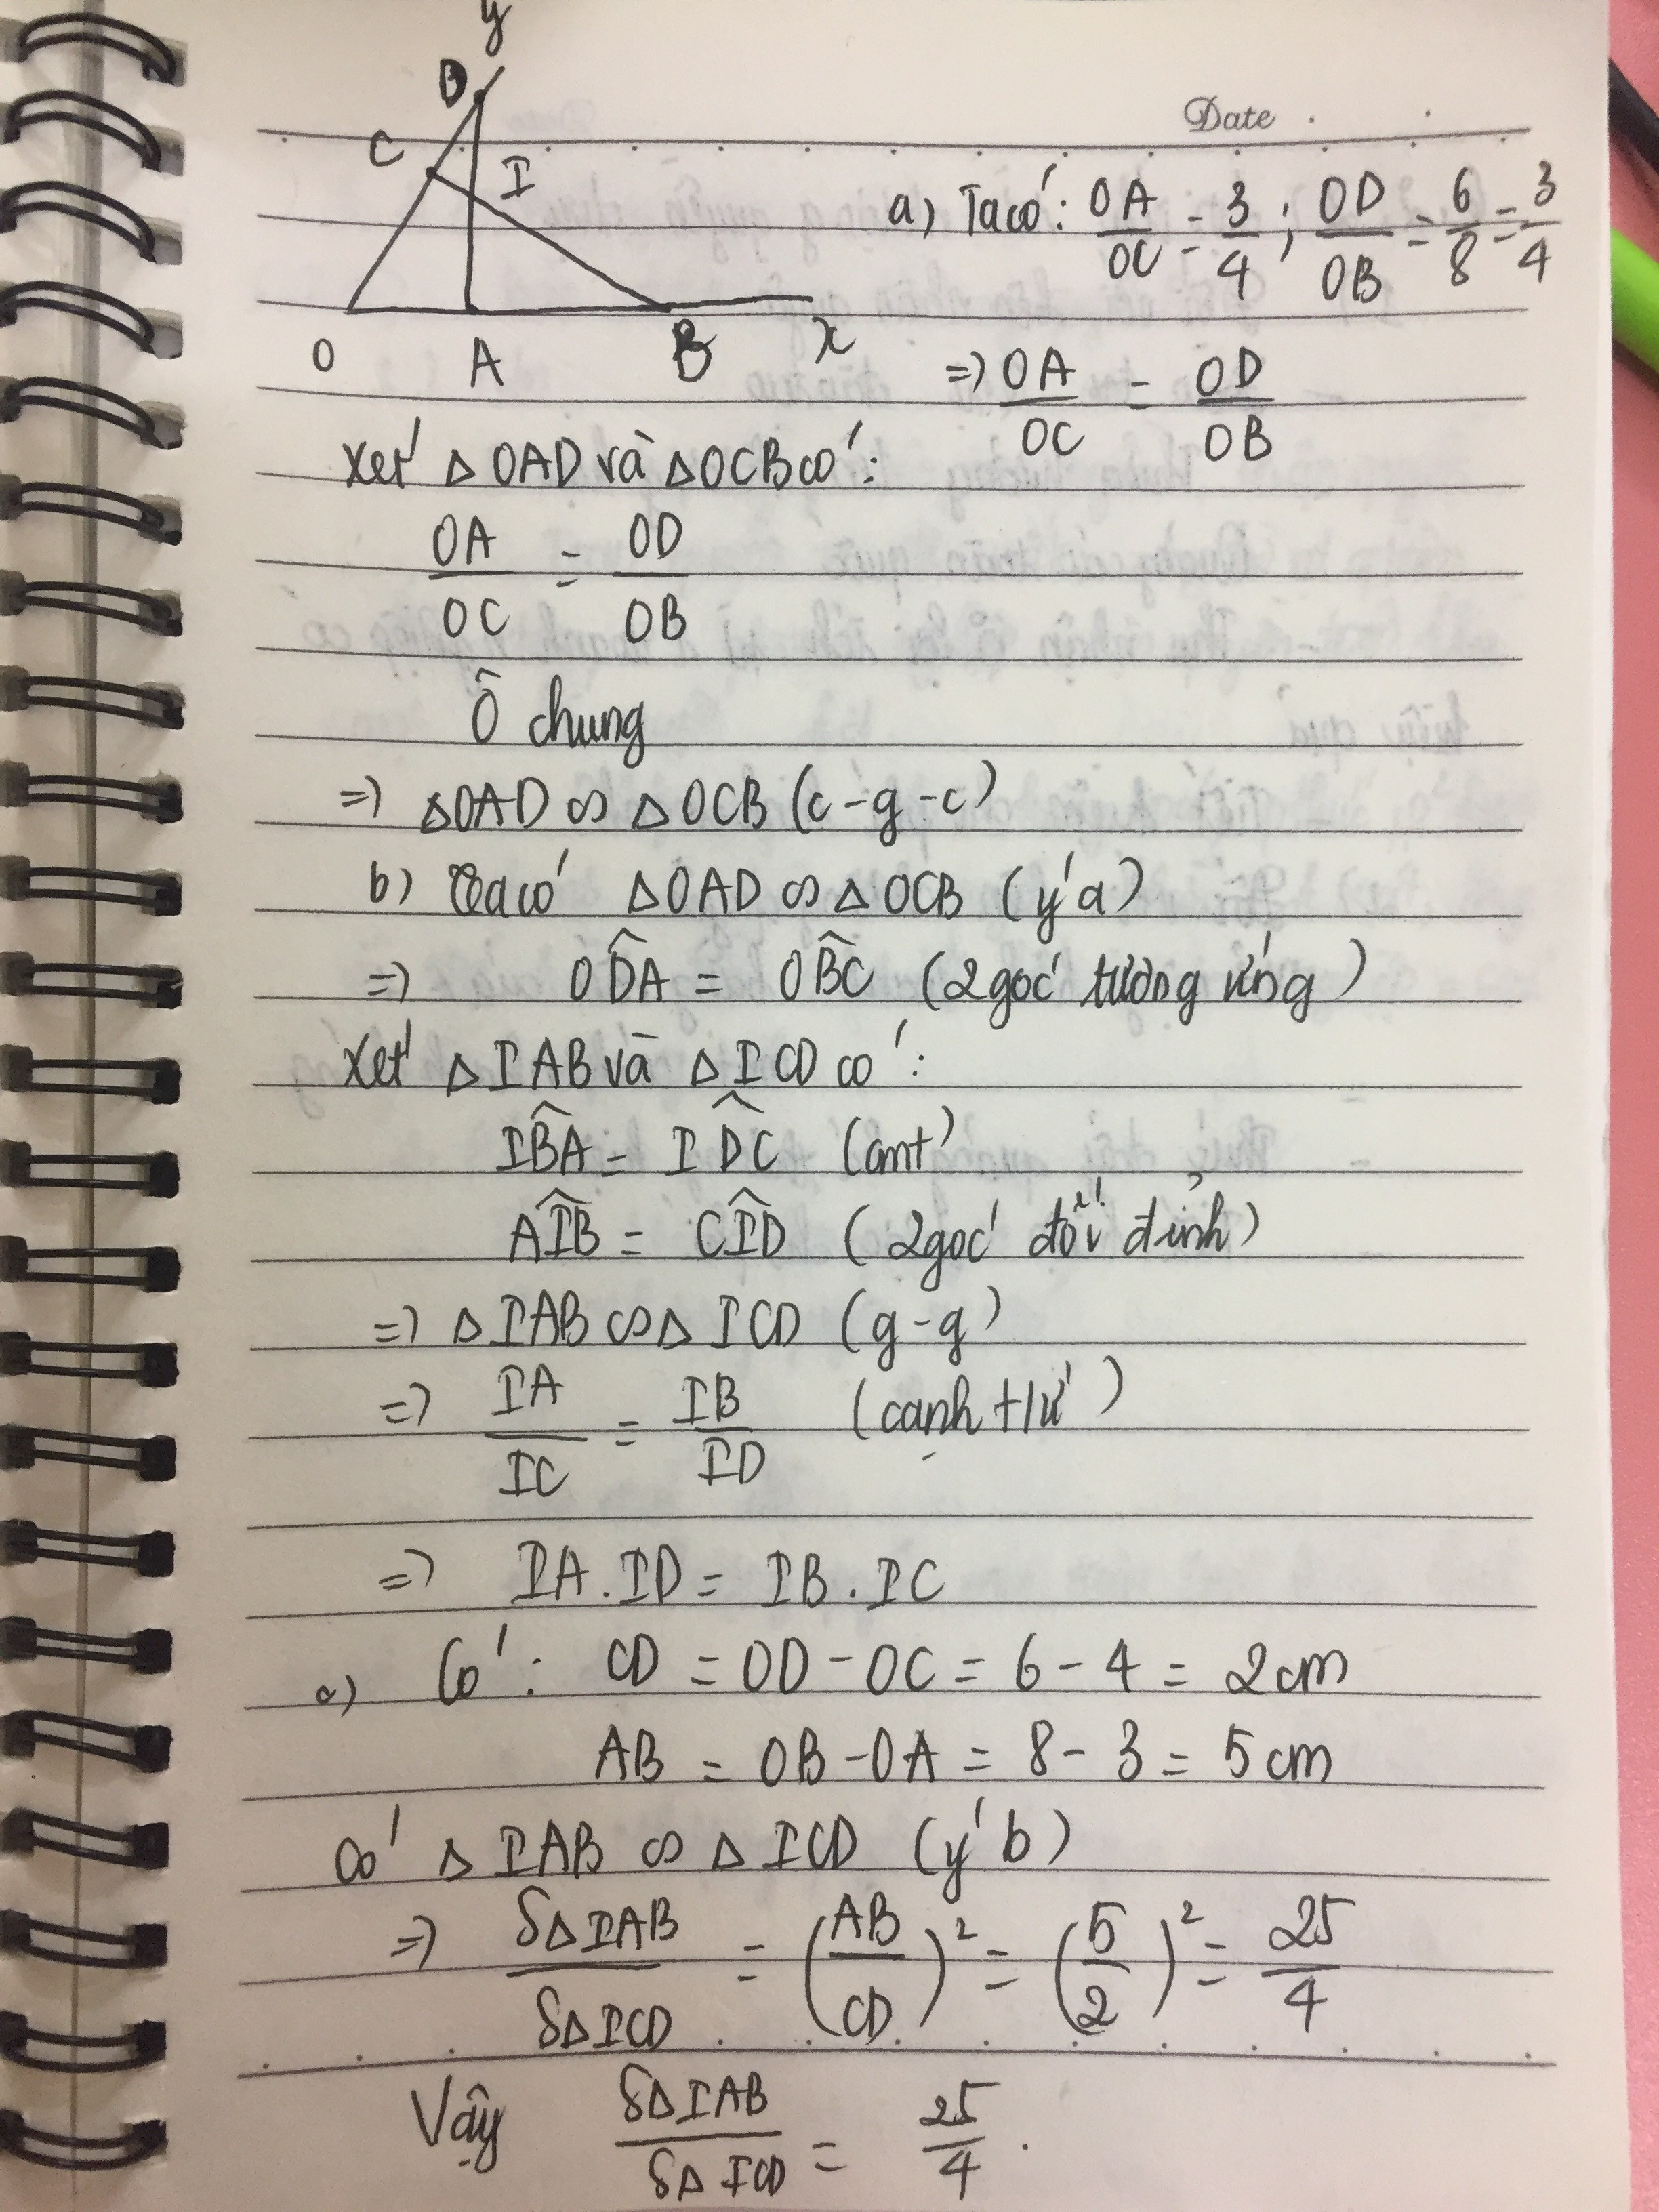 y
D
Date
C
I
a) Ta có: OA/OC = 3/4 ; OD/OB = 6/8 = 3/4
O A B x
=> OA/OC = OD/OB
Xét △OAD và △OCB có:
OA/OC = OD/OB
Ô chung
=> △OAD ∽ △OCB (c-g-c)
b) Ta có △OAD ∽ △OCB (ý a)
=> OD̂A = OB̂C (2 góc tương ứng)
Xét △IAB và △ICD có:
IB̂A = ID̂C (cmt)
AÎB = CÎD (2 góc đối đỉnh)
=> △IAB ∽ △ICD (g-g)
=> IA/IC = IB/ID (cạnh t/ứ)
=> IA.ID = IB.IC
c) Có: CD = OD - OC = 6 - 4 = 2cm
AB = OB - OA = 8 - 3 = 5cm
Có △IAB ∽ △ICD (ý b)
=> S△IAB/S△ICD = (AB/CD)² = (5/2)² = 25/4
Vậy S△IAB/S△ICD = 25/4.